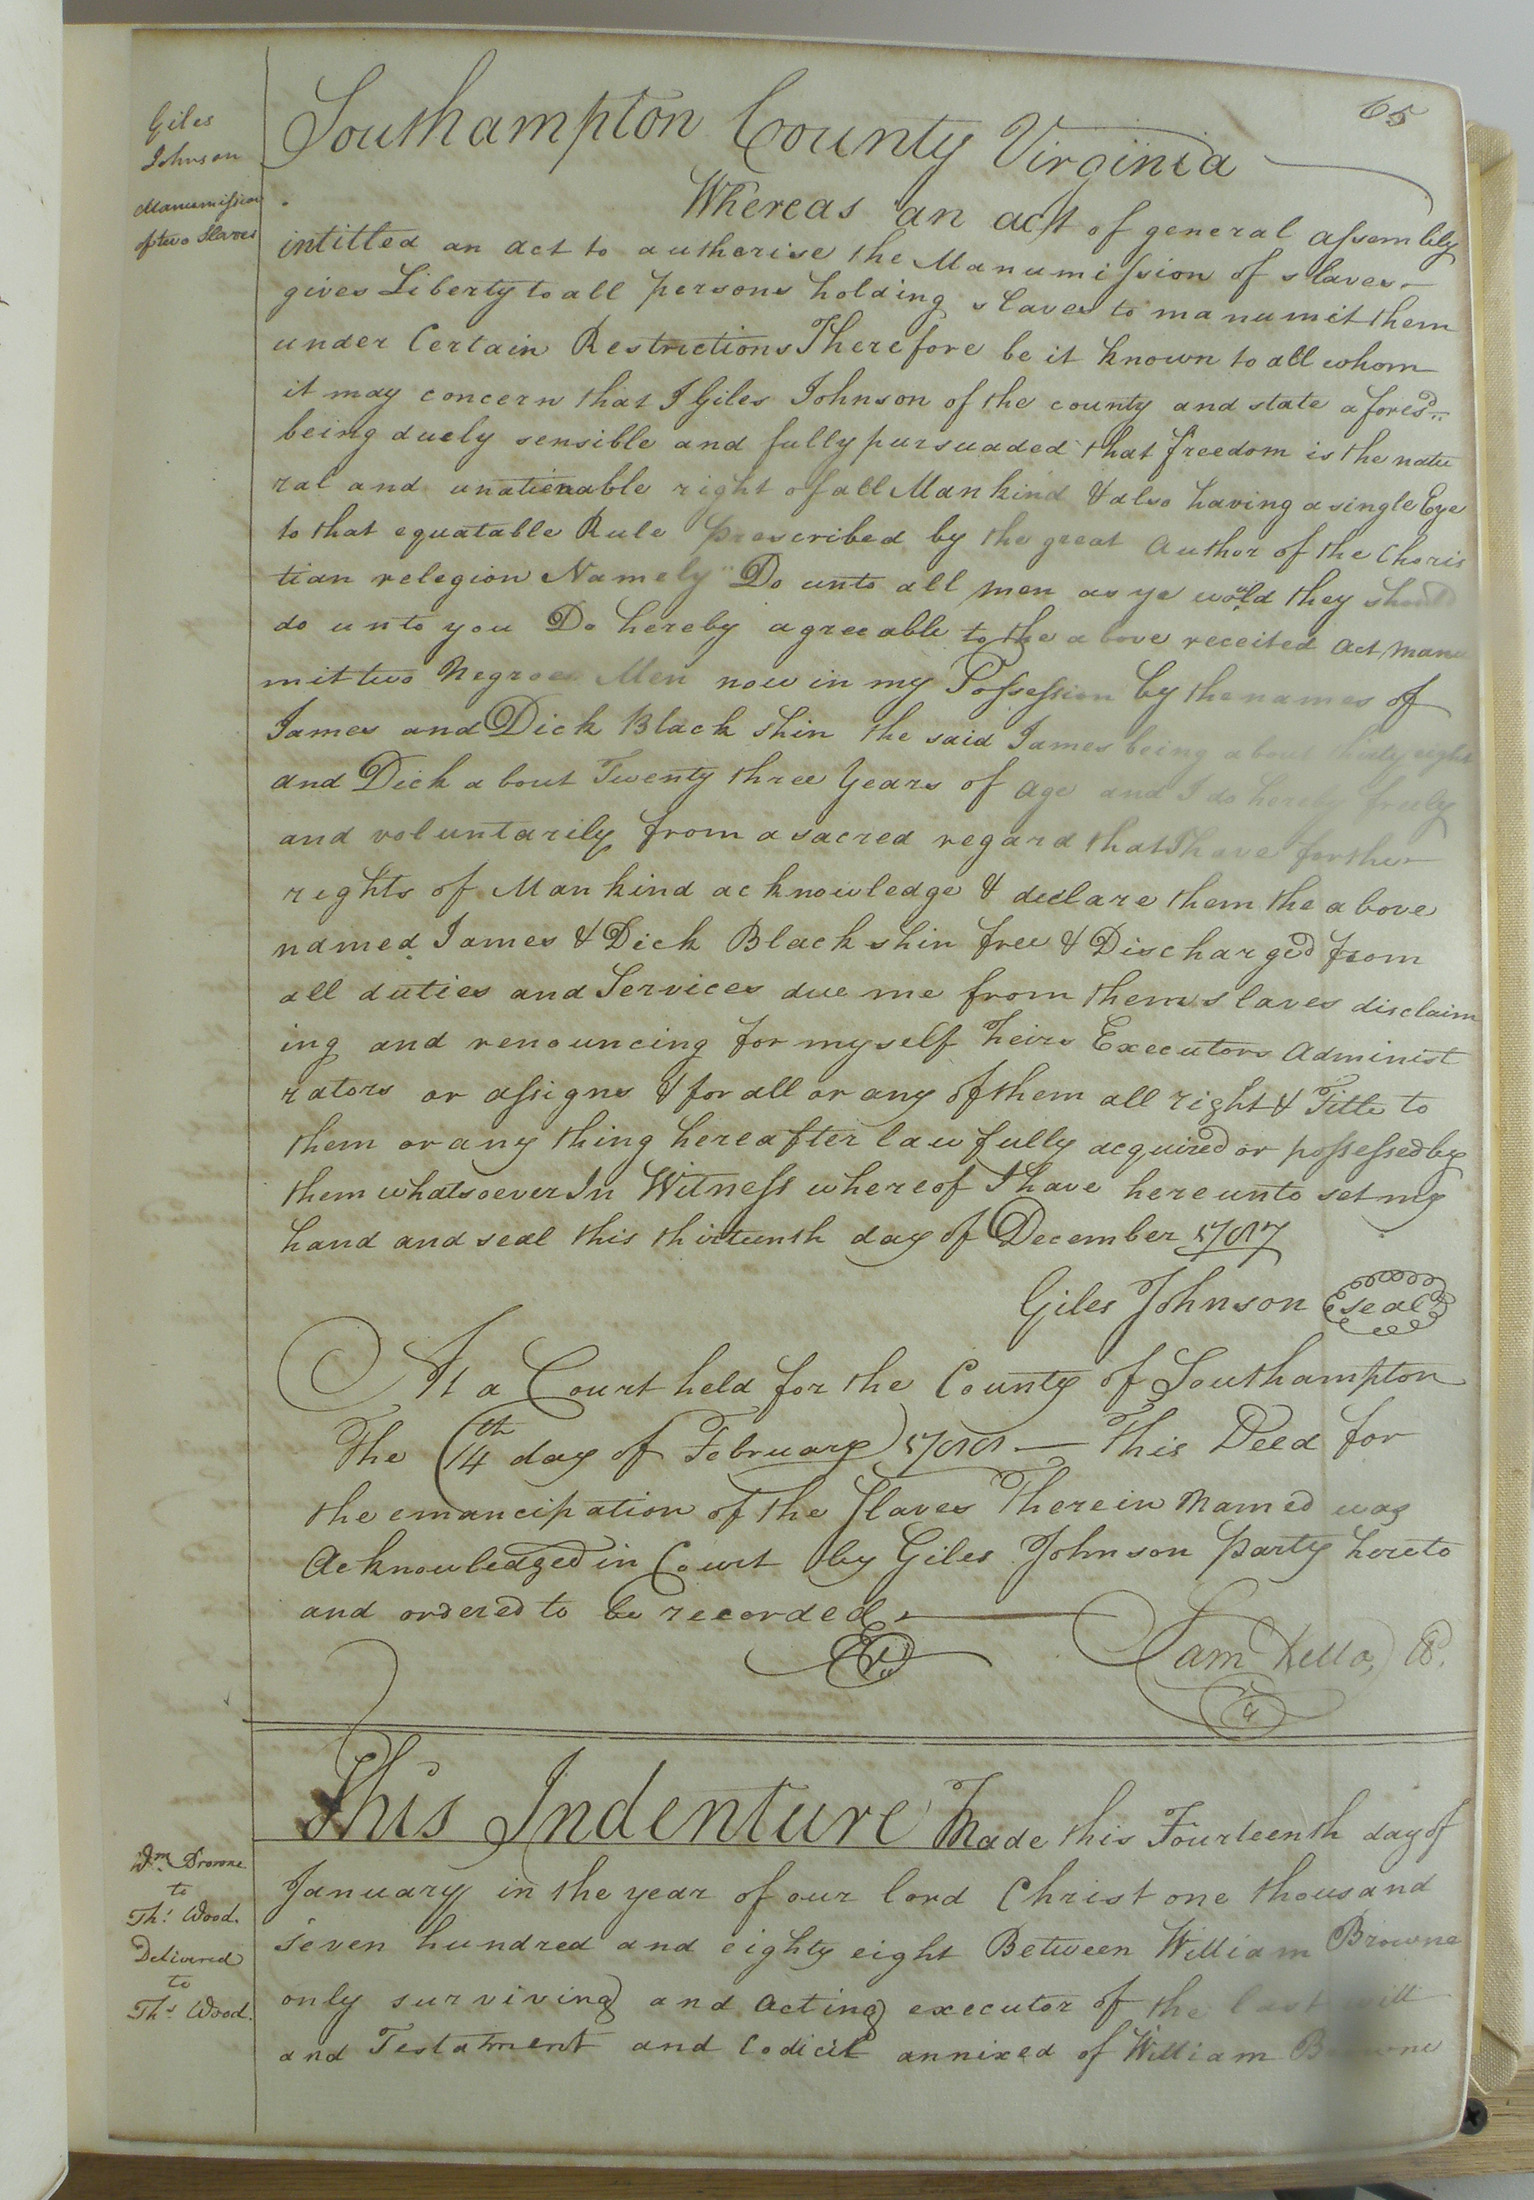 65
Giles
Johnson
Manumission
of two Slaves
Southampton County Virginia
Whereas an act of general assembly
intitled an act to autherise the Manumission of slaves
gives Liberty to all persons holding slaves to manumit them
under Certain Restrictions Therefore be it known to all whom
it may concern that I Giles Johnson of the county and state aforesd
being duely sensible and fully pursuaded that freedom is the natu
ral and unatienable right of all Mankind & also having a single Eye
to that equatable Rule prescribed by the great Author of the Choris
tian relegion Namely "Do unto all men as ye would they should
do unto you Do hereby agreeable to the above receited Act manu
mit two Negroes Men now in my Possession by the names of
James and Dick Blackshin the said James being about eight
and Dick about Twenty three Years of Age and I do hereby freely
and voluntarily from a sacred regard that I have for the
rights of Mankind acknowledge & declare them the above
named James & Dick Blackshin free & Discharged from
all duties and Services due me from them slaves disclaim
ing and renouncing for myself heirs Executors Administ
rators or assigns & for all or any of them all right & Title to
them or any thing hereafter lawfully acquired or possessed by
them whatsoever In Witness whereof I have hereunto set my
hand and seal this thirteenth day of December 1787
Giles Johnson seal
At a Court held for the County of Southampton
the 14th day of February 1788 — This Deed for
the emancipation of the Slaves Therein Named was
Acknowledged in Court by Giles Johnson party hereto
and ordered to be recorded
Sam Kello,
Wm Browne
to
Ths Wood.
Delivered
to
Ths Wood.
This Indenture Made this Fourteenth day of
January in the year of our lord Christ one thousand
seven hundred and eighty eight Between William Browne
only surviving and Acting executor of the last will
and Testament and Codicil annixed of William Browne